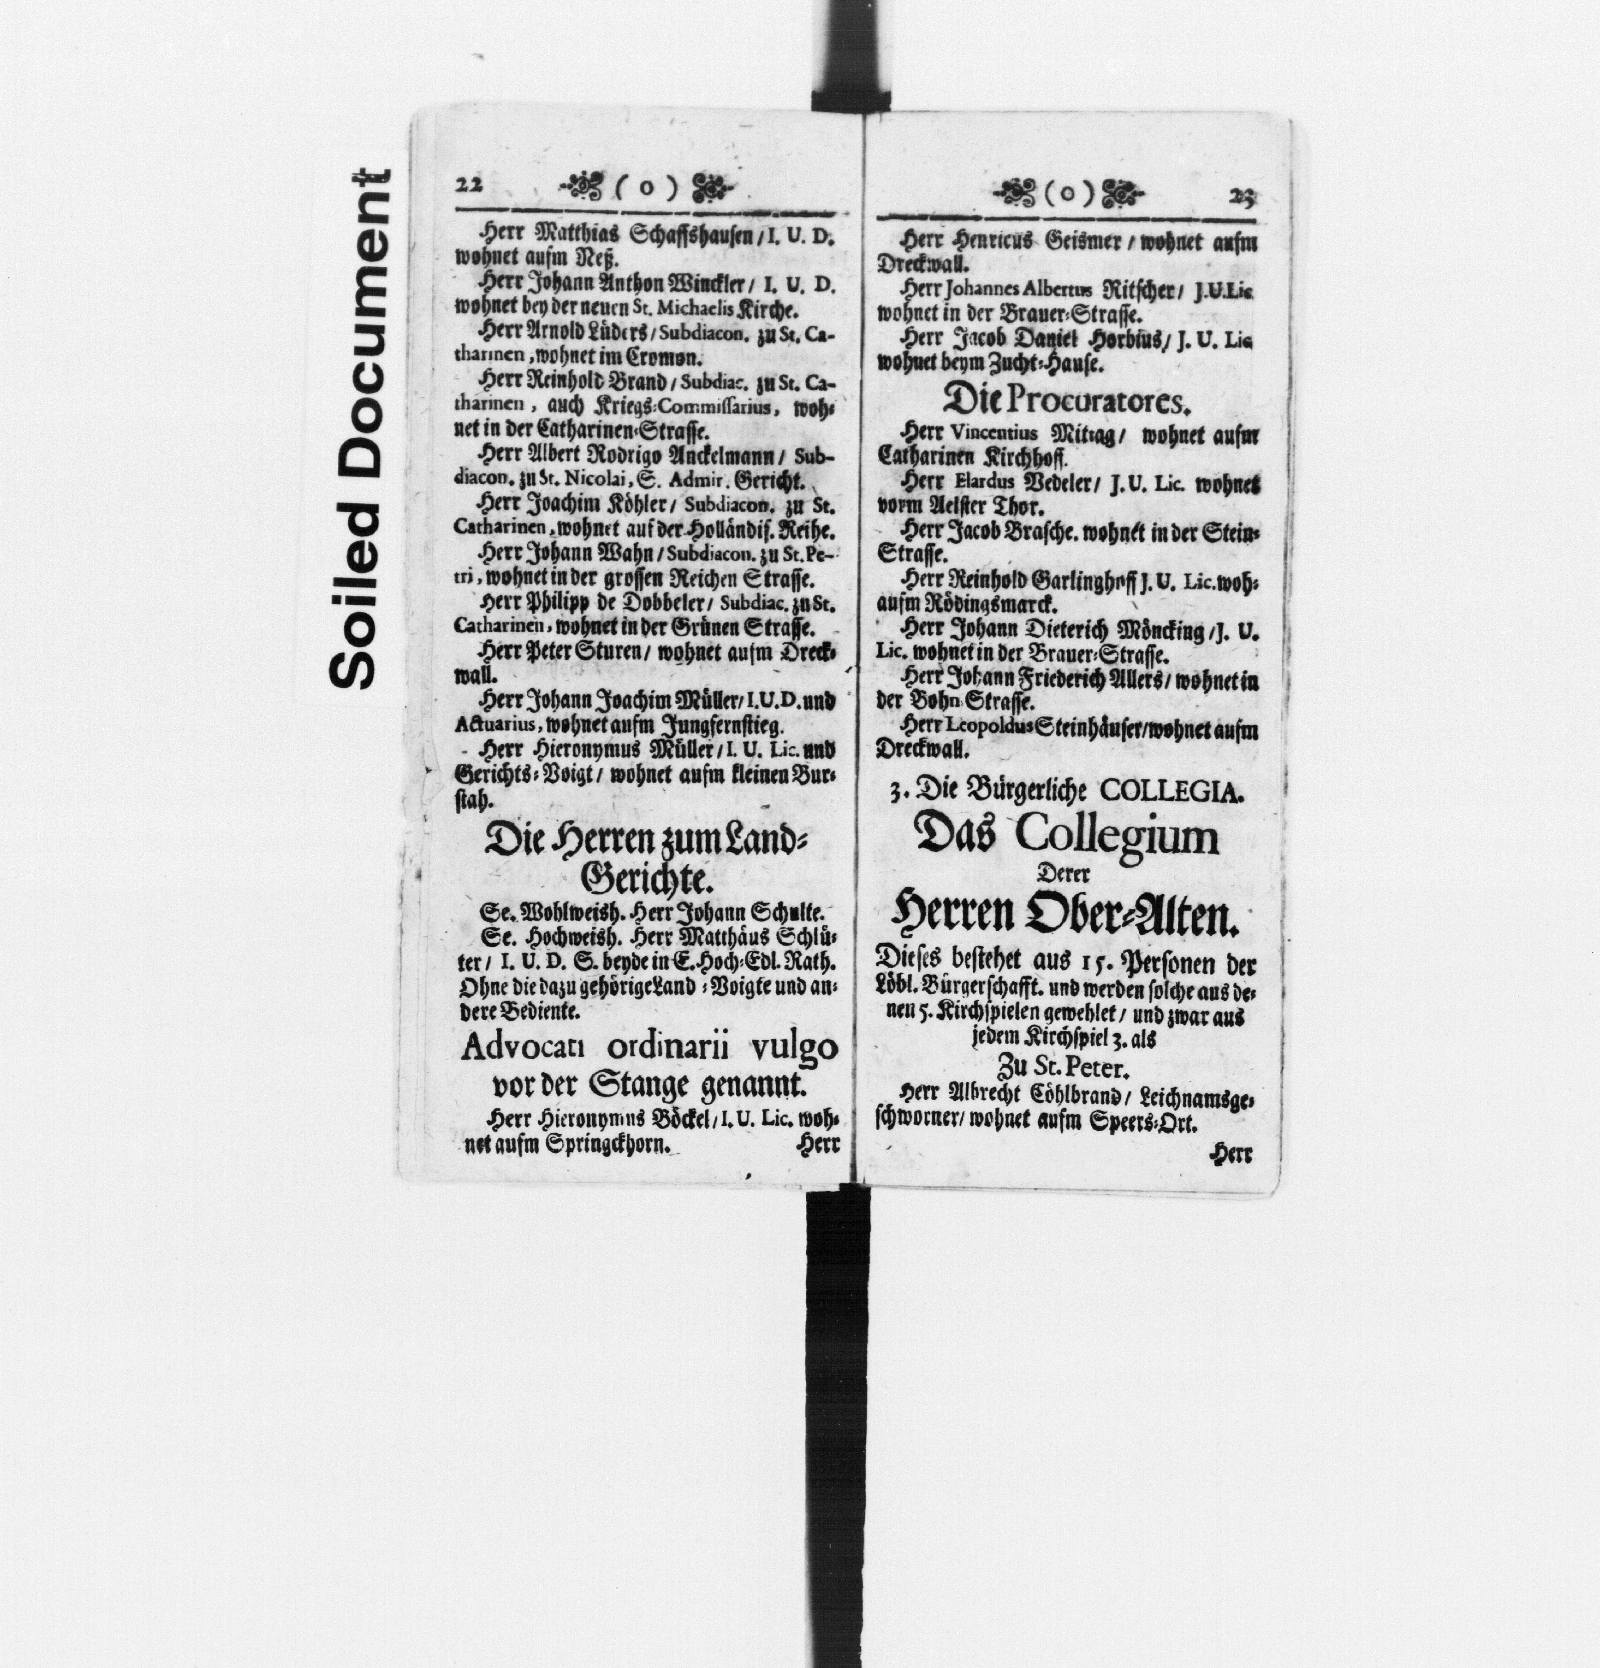 Soiled Document
22 ( o )
Herr Matthias Schaffshausen / I. U. D.
wohnet aufm Neß.
Herr Johann Anthon Winckler / I. U. D.
wohnet bey der neuen St. Michaelis Kirche.
Herr Arnold Lüders / Subdiacon. zu St. Ca-
tharinen, wohnet im Cromon.
Herr Reinhold Brand / Subdiac. zu St. Ca-
tharinen, auch Kriegs-Commissarius, woh-
net in der Catharinen-Strasse.
Herr Albert Rodrigo Anckelmann / Sub-
diacon. zu St. Nicolai, S. Admir. Gericht.
Herr Joachim Köhler / Subdiacon. zu St.
Catharinen, wohnet auf der Holländis. Reihe.
Herr Johann Wahn / Subdiacon. zu St. Pe-
tri, wohnet in der grossen Reichen Strasse.
Herr Philipp de Dobbeler / Subdiac. zu St.
Catharinen, wohnet in der Grünen Strasse.
Herr Peter Sturen / wohnet aufm Dreck-
wall.
Herr Johann Joachim Müller / I. U. D. und
Actuarius, wohnet aufm Jungfernstieg.
Herr Hieronymus Müller / I. U. Lic. und
Gerichts-Voigt / wohnet aufm kleinen Bur-
stah.
Die Herren zum Land-
Gerichte.
Se. Wohlweish. Herr Johann Schulte.
Se. Hochweish. Herr Matthäus Schlü-
ter / I. U. D. S. beyde in E. Hoch-Edl. Rath.
Ohne die dazu gehörige Land-Voigte und an-
dere Bediente.
Advocati ordinarii vulgo
vor der Stange genannt.
Herr Hieronymus Böckel / I. U. Lic. woh-
net aufm Springckhorn. Herr
( o ) 23
Herr Henricus Geismer / wohnet aufm
Dreckwall.
Herr Johannes Albertus Ritscher / J. U. Lic
wohnet in der Brauer-Strasse.
Herr Jacob Daniel Horbius / J. U. Lic
wohnet beym Zucht-Hause.
Die Procuratores.
Herr Vincentius Mittag / wohnet aufm
Catharinen Kirchhoff.
Herr Elardus Vedeler / J. U. Lic. wohnet
vorm Aelster Thor.
Herr Jacob Brasche. wohnet in der Stein-
Strasse.
Herr Reinhold Garlinghoff J. U. Lic. woh-
aufm Rödingsmarck.
Herr Johann Dieterich Möncking / J. U.
Lic. wohnet in der Brauer-Strasse.
Herr Johann Friederich Allers / wohnet in
der Bohn-Strasse.
Herr Leopoldus Steinhäuser / wohnet aufm
Dreckwall.
3. Die Bürgerliche COLLEGIA.
Das Collegium
Derer
Herren Ober-Alten.
Dieses bestehet aus 15. Personen der
Löbl. Bürgerschafft. und werden solche aus de-
nen 5. Kirchspielen gewehlet / und zwar aus
jedem Kirchspiel 3. als
Zu St. Peter.
Herr Albrecht Cöhlbrand / Leichnamsge-
schworner / wohnet aufm Speers-Ort.
Herr